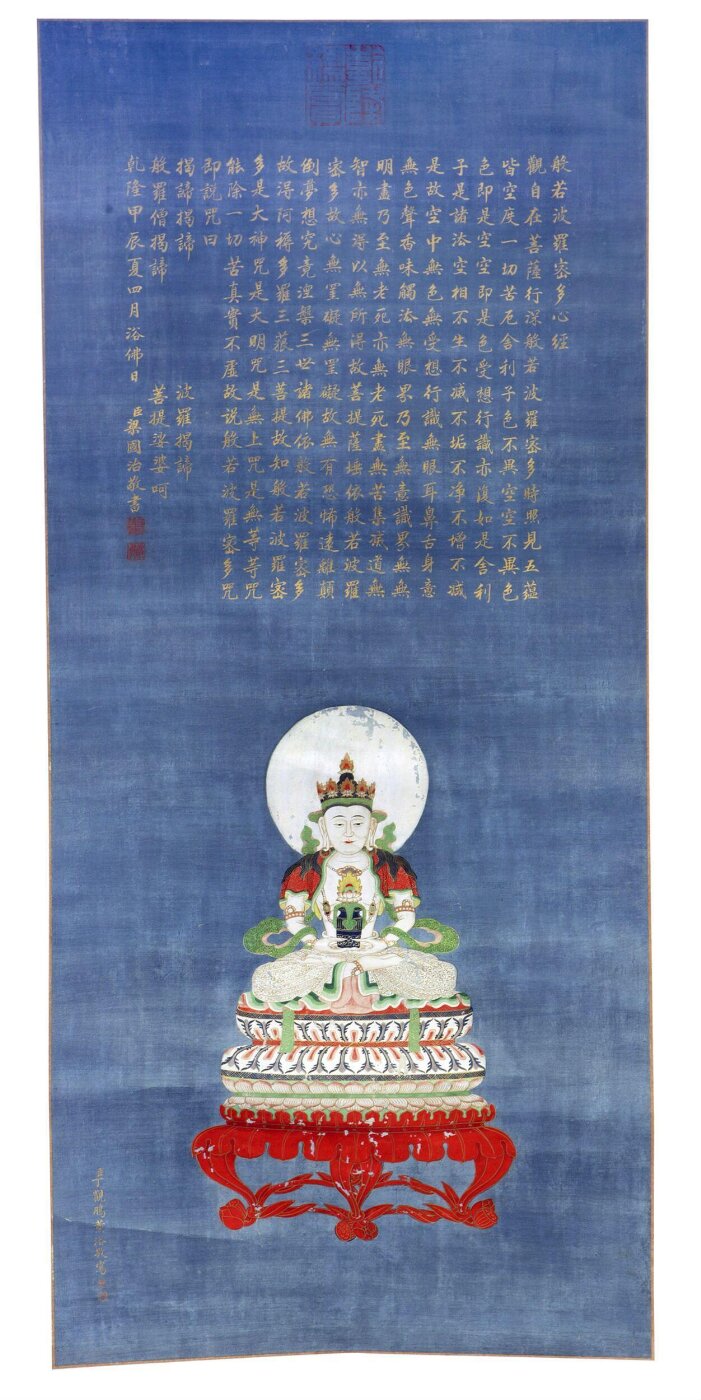 般若波羅密多心經
觀自在菩薩行深般若波羅密多時照見五蘊
皆空度一切苦厄舍利子色不異空空不異色
色即是空空即是色受想行識亦復如是舍利
子是諸法空相不生不滅不垢不净不增不減
是故空中無色無受想行識無眼耳鼻舌身意
無色聲香味觸法無眼界乃至無意識界無無
明盡乃至無老死亦無老死盡無苦集滅道無
智亦無得以無所得故菩提薩埵依般若波羅
密多故心無罣礙無罣礙故無有恐怖遠離顛
倒夢想究竟涅槃三世諸佛依般若波羅密多
故得阿耨多羅三藐三菩提故知般若波羅密
多是大神咒是大明咒是無上咒是無等等咒
能除一切苦真實不虛故說般若波羅密多咒
即說咒曰
揭諦揭諦 波羅揭諦
般羅僧揭諦 菩提娑婆呵
乾隆甲辰夏四月浴佛日 臣梁國治敬書
丁觀鵬薰沐敬寫